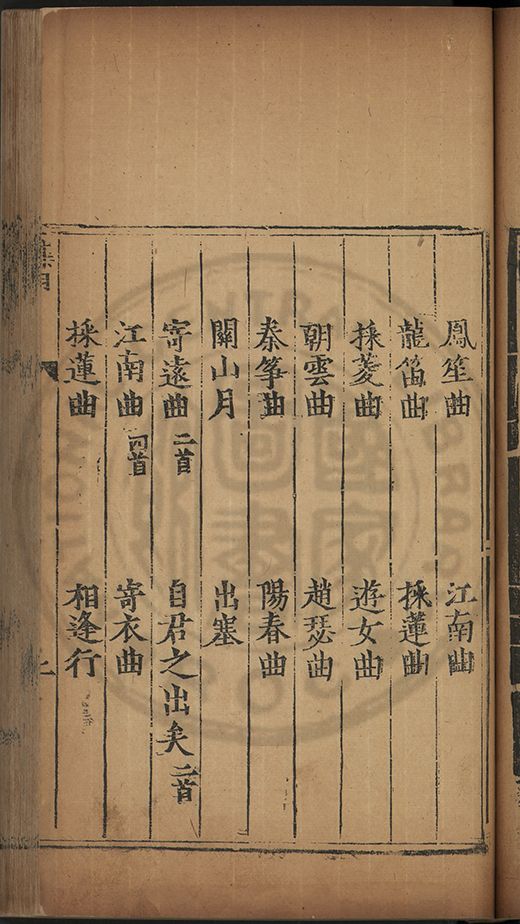 鳳笙曲 江南曲
龍笛曲 採蓮曲
採菱曲 遊女曲
朝雲曲 趙瑟曲
秦箏曲 陽春曲
關山月 出塞
寄遠曲二首 自君之出矣二首
江南曲四首 寄衣曲
採蓮曲 相逢行